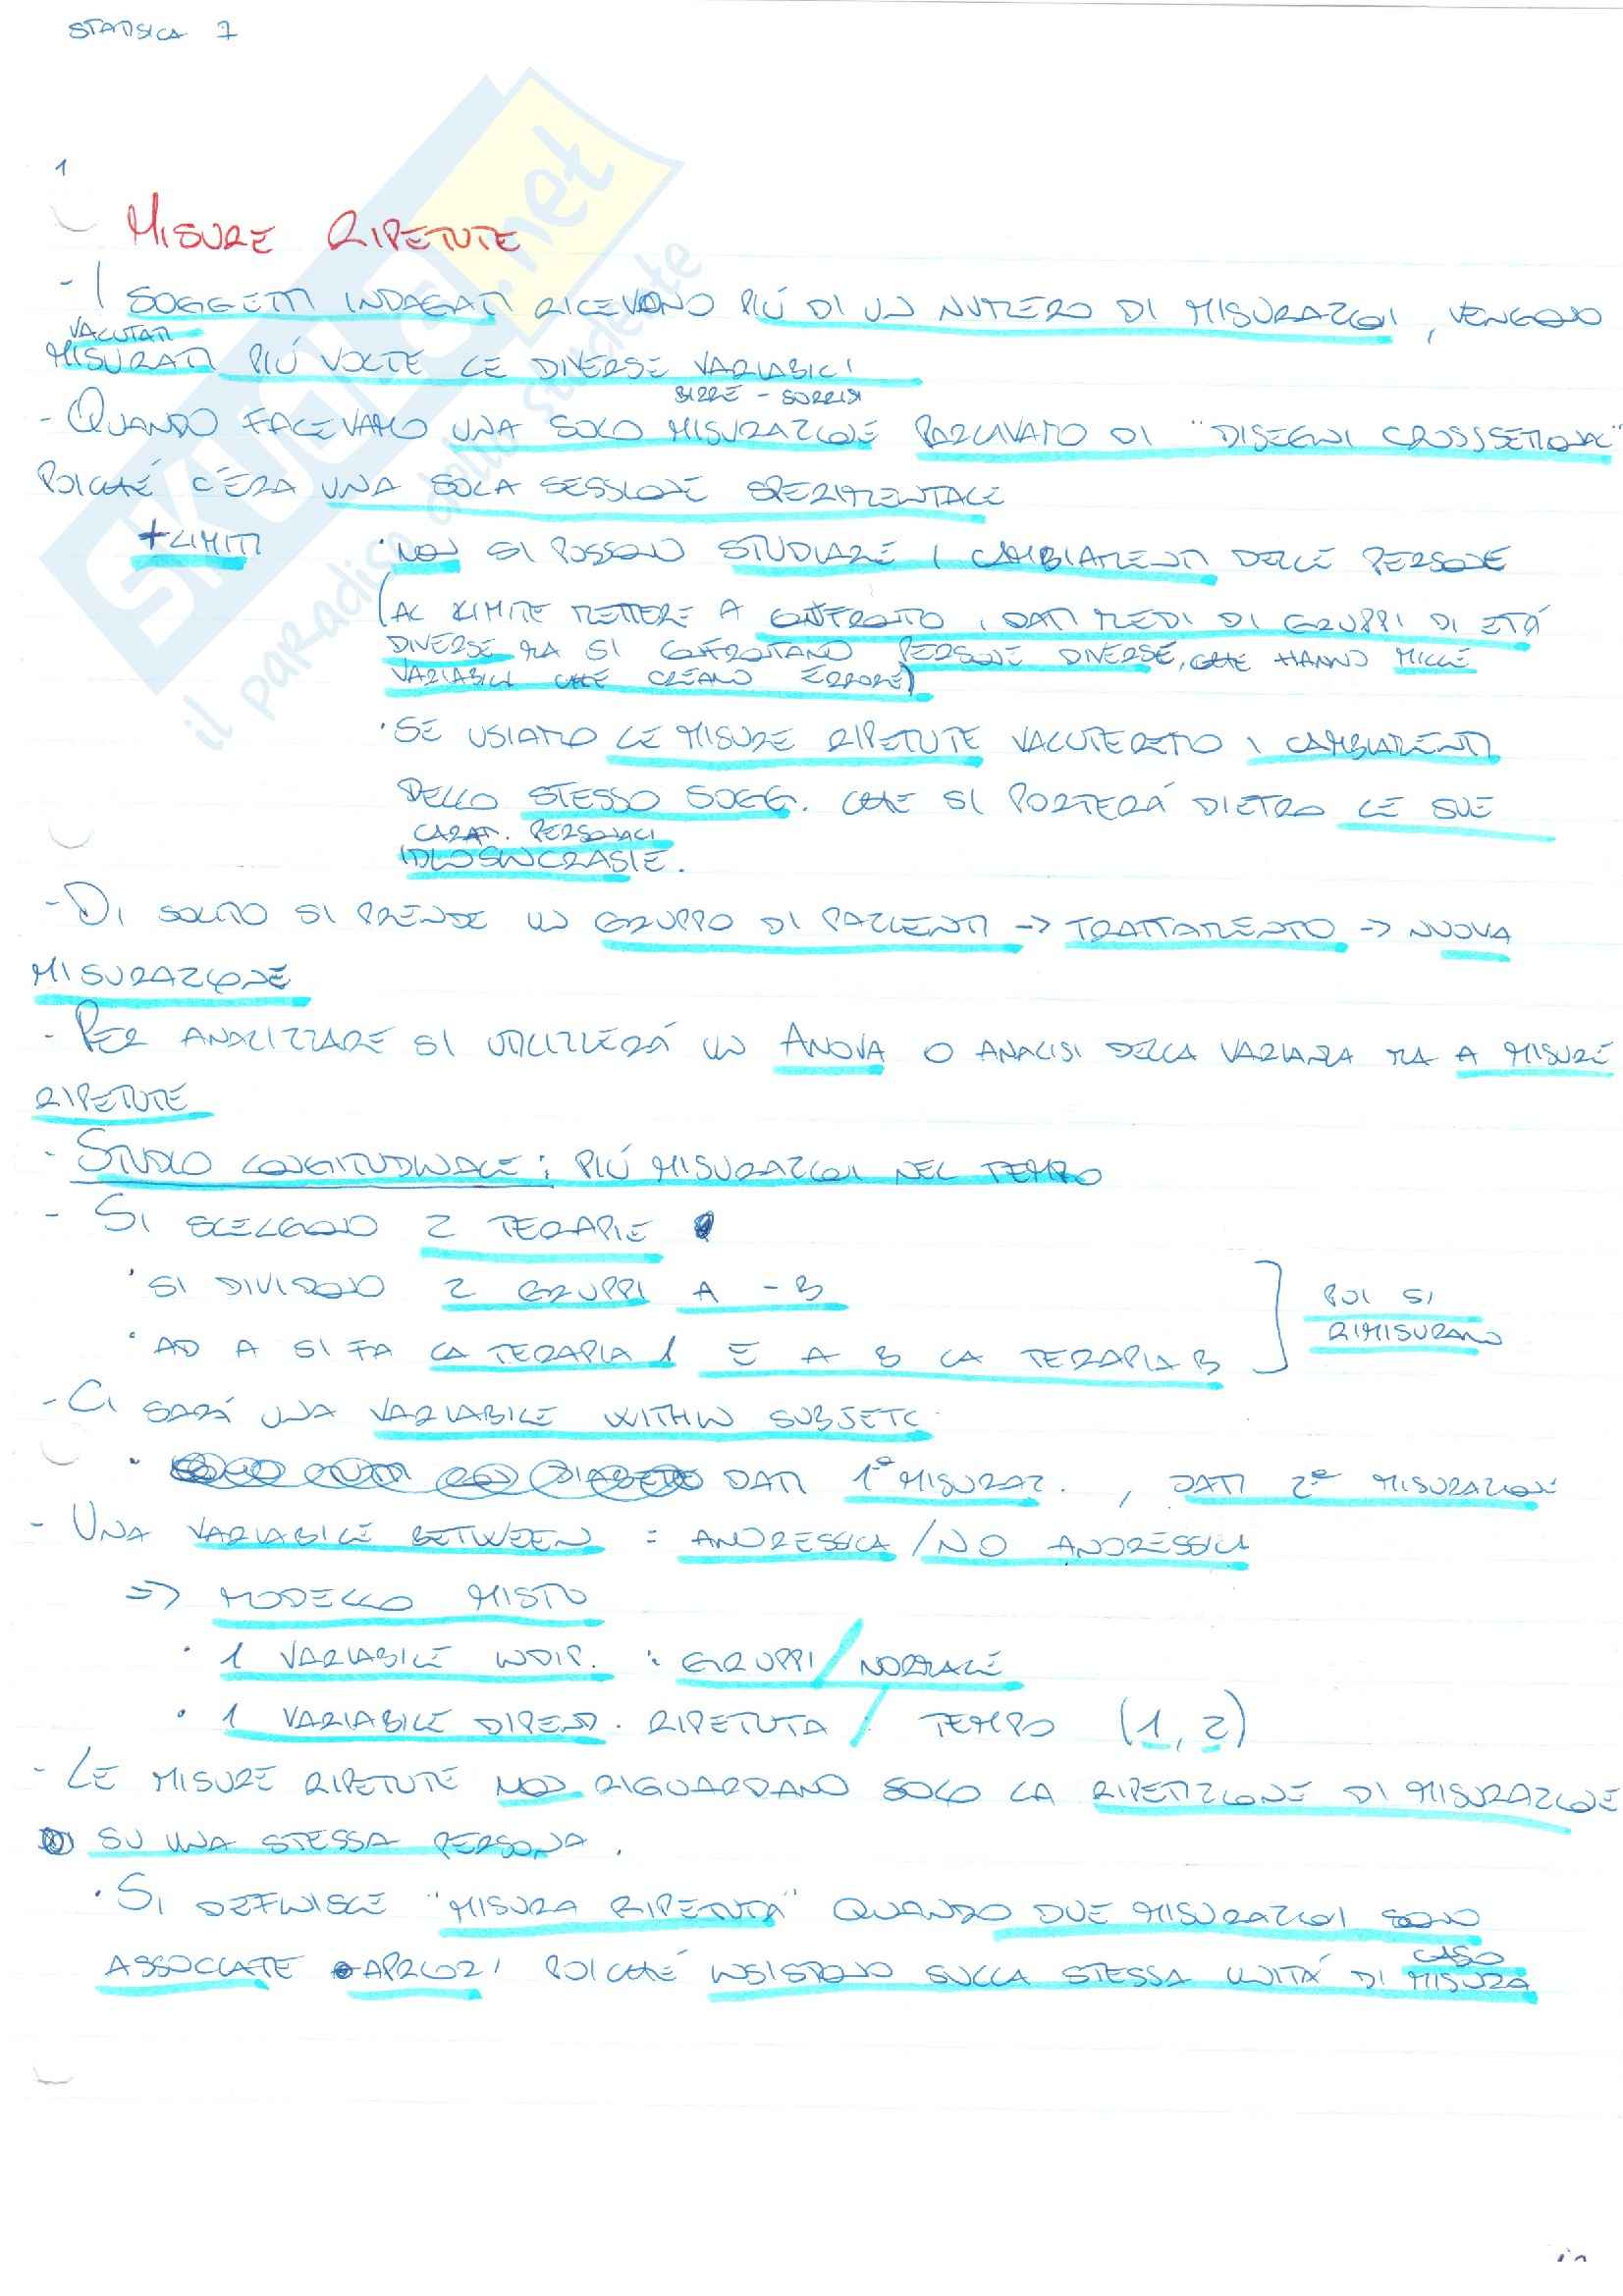 STATISICA 7
1
MISURE RIPETUTE
- I SOGGETTI INDAGATI RICEVONO PIÚ DI UN NUMERO DI MISURAZIONI, VENGONO
VALUTATI
MISURATI PIÚ VOLTE LE DIVERSE VARIABILI
BIRRE - SORRISI
- QUANDO FACEVAMO UNA SOLO MISURAZIONE PARLAVAMO DI "DISEGNI CROSSSETIONAL"
POICHÉ C'ERA UNA SOLA SESSIONE SPERIMENTALE
+ LIMITI · NON SI POSSONO STUDIARE I CAMBIAMENTI DELLE PERSONE
(AL LIMITE METTERE A CONFRONTO I DATI MEDI DI GRUPPI DI ETÁ
DIVERSE MA SI CONFRONTANO PERSONE DIVERSE, CHE HANNO MILLE
VARIABILI CHE CREANO ERRORE)
· SE USIAMO LE MISURE RIPETUTE VALUTEREMO I CAMBIAMENTI
DELLO STESSO SOGG. CHE SI PORTERÁ DIETRO LE SUE
CARAT. PERSONALI
IDIOSINCRASIE.
- DI SOLITO SI PRENDE UN GRUPPO DI PAZIENTI -> TRATTAMENTO -> NUOVA
MISURAZIONE
- PER ANALIZZARE SI UTILIZZERÁ UN ANOVA O ANALISI DELLA VARIANZA MA A MISURE
RIPETUTE
- STUDIO LONGITUDINALE : PIÚ MISURAZIONI NEL TEMPO
- SI SCELGONO 2 TERAPIE
· SI DIVIDONO 2 GRUPPI A - B
POI SI
RIMISURANO
· AD A SI FA LA TERAPIA 1 E A B LA TERAPIA B
- CI SARÁ UNA VARIABILE WITHIN SUBJETC
· DATI 1ª MISURAZ. , DATI 2ª MISURAZIONE
- UNA VARIABILE BETWEEN : ANORESSICA / NO ANORESSICA
=> MODELLO MISTO
· 1 VARIABILE INDIP. : GRUPPI / NORMALE
· 1 VARIABILE DIPEND. RIPETUTA / TEMPO (1, 2)
- LE MISURE RIPETUTE NON RIGUARDANO SOLO LA RIPETIZIONE DI MISURAZIONE
SU UNA STESSA PERSONA.
· SI DEFINISCE "MISURA RIPETUTA" QUANDO DUE MISURAZIONI SONO
CASO
ASSOCIATE APRIORI POICHÉ INSISTONO SULLA STESSA UNITÁ DI MISURA
SKUOLA.net
il paradiso dello studente